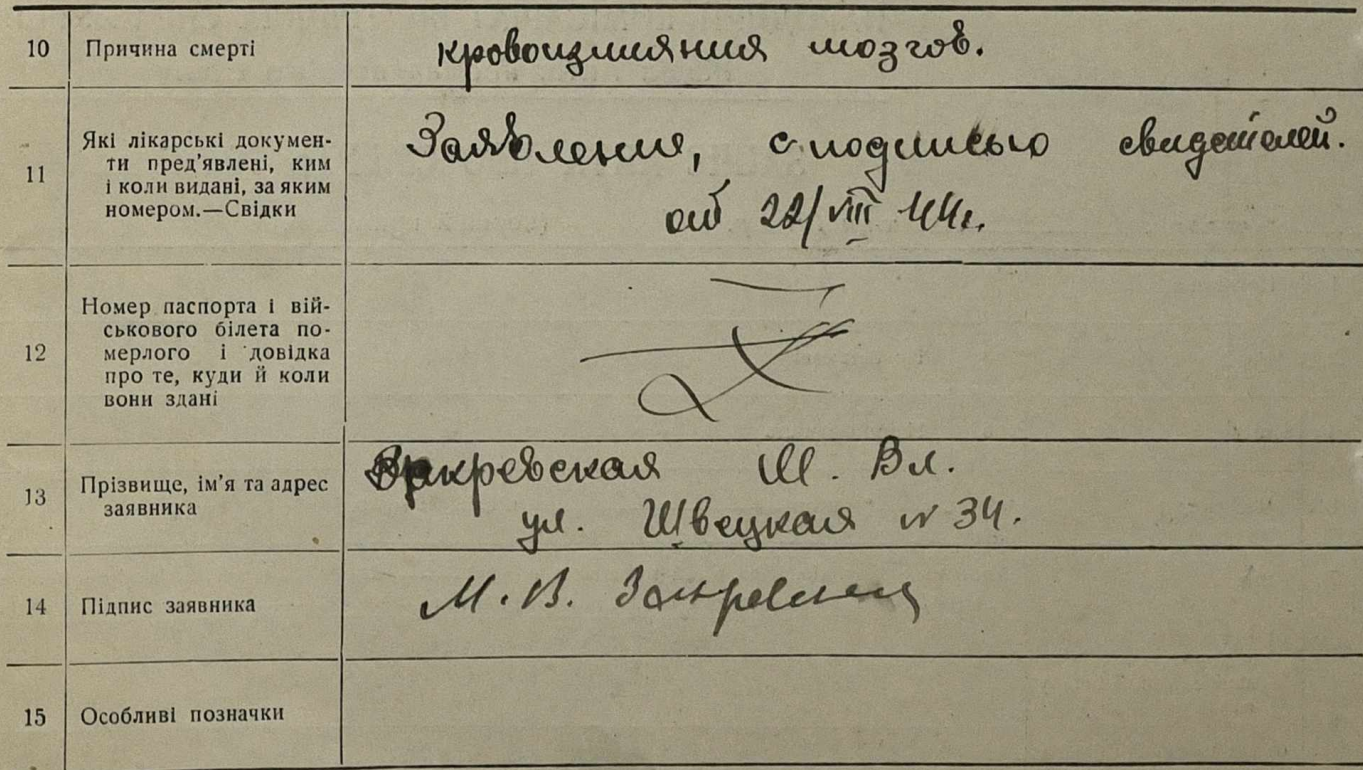 10 Причина смерті
кровоизлияния мозгов.
11 Які лікарські докумен-
ти пред'явлені, ким
і коли видані, за яким
номером.—Свідки
Заявления, с подписью свидетелей.
от 22/VIII 44г.
12 Номер паспорта і вій-
ськового білета по-
мерлого і довідка
про те, куди й коли
вони здані
13 Прізвище, ім'я та адрес
заявника
Закревская М. Вл.
ул. Швецкая № 34.
14 Підпис заявника
М. В. Закревская
15 Особливі позначки